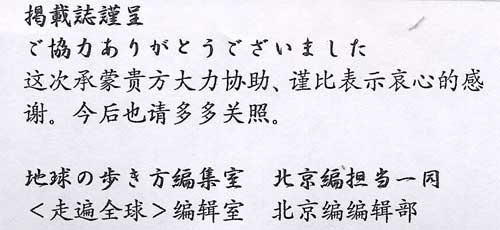 掲載誌謹呈
ご協力ありがとうございました
这次承蒙贵方大力协助、谨比表示哀心的感
谢。今后也请多多关照。
地球の歩き方編集室　北京編担当一同
＜走遍全球＞编辑室　北京编编辑部